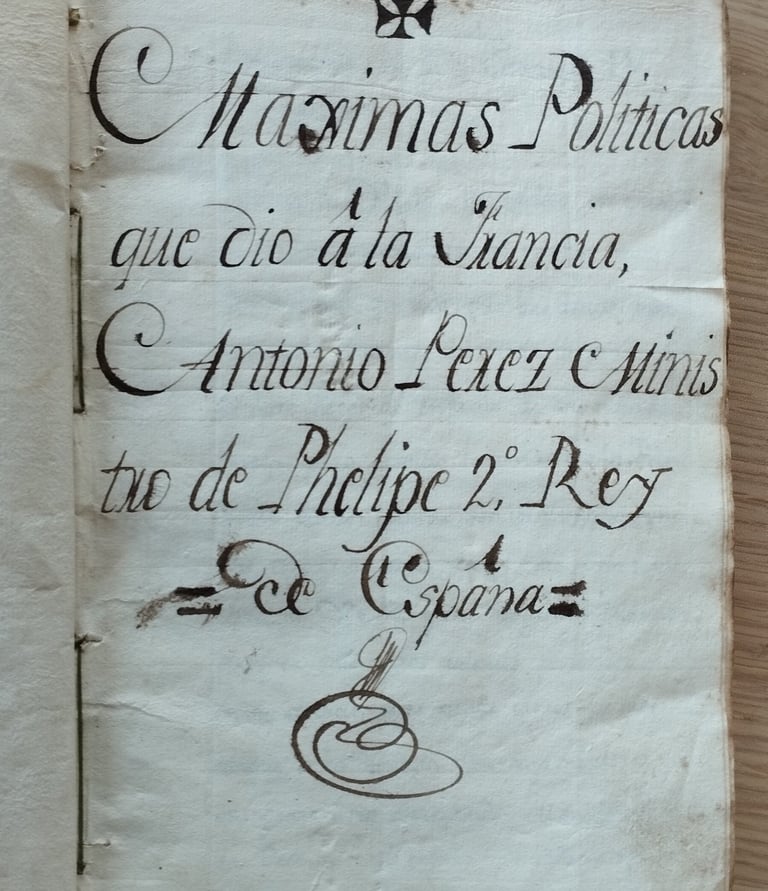 Maximas Politicas
que dio â la Francia,
Antonio Perez Minis
tro de Phelipe 2.º Rey
= de España =